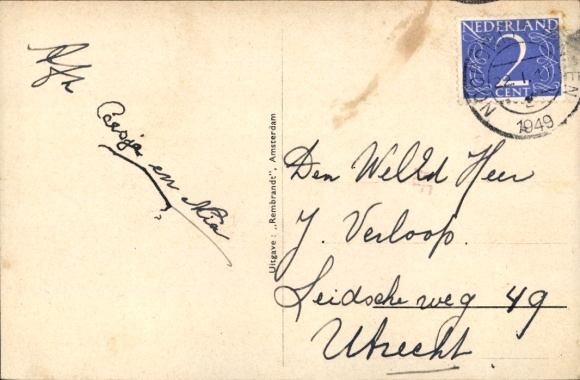 Afz
Coosje en Mia
?
Uitgave: „Rembrandt”, Amsterdam
NEDERLAND
2
CENT
1949
Den WelEd Heer
J. Verloop.
Leidsche weg 49
Utrecht.